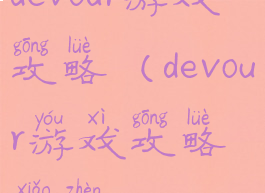 devour游戏
gōng lüè
攻略（devou
yóu xì gōng lüè
r游戏攻略
xiǎo zhèn